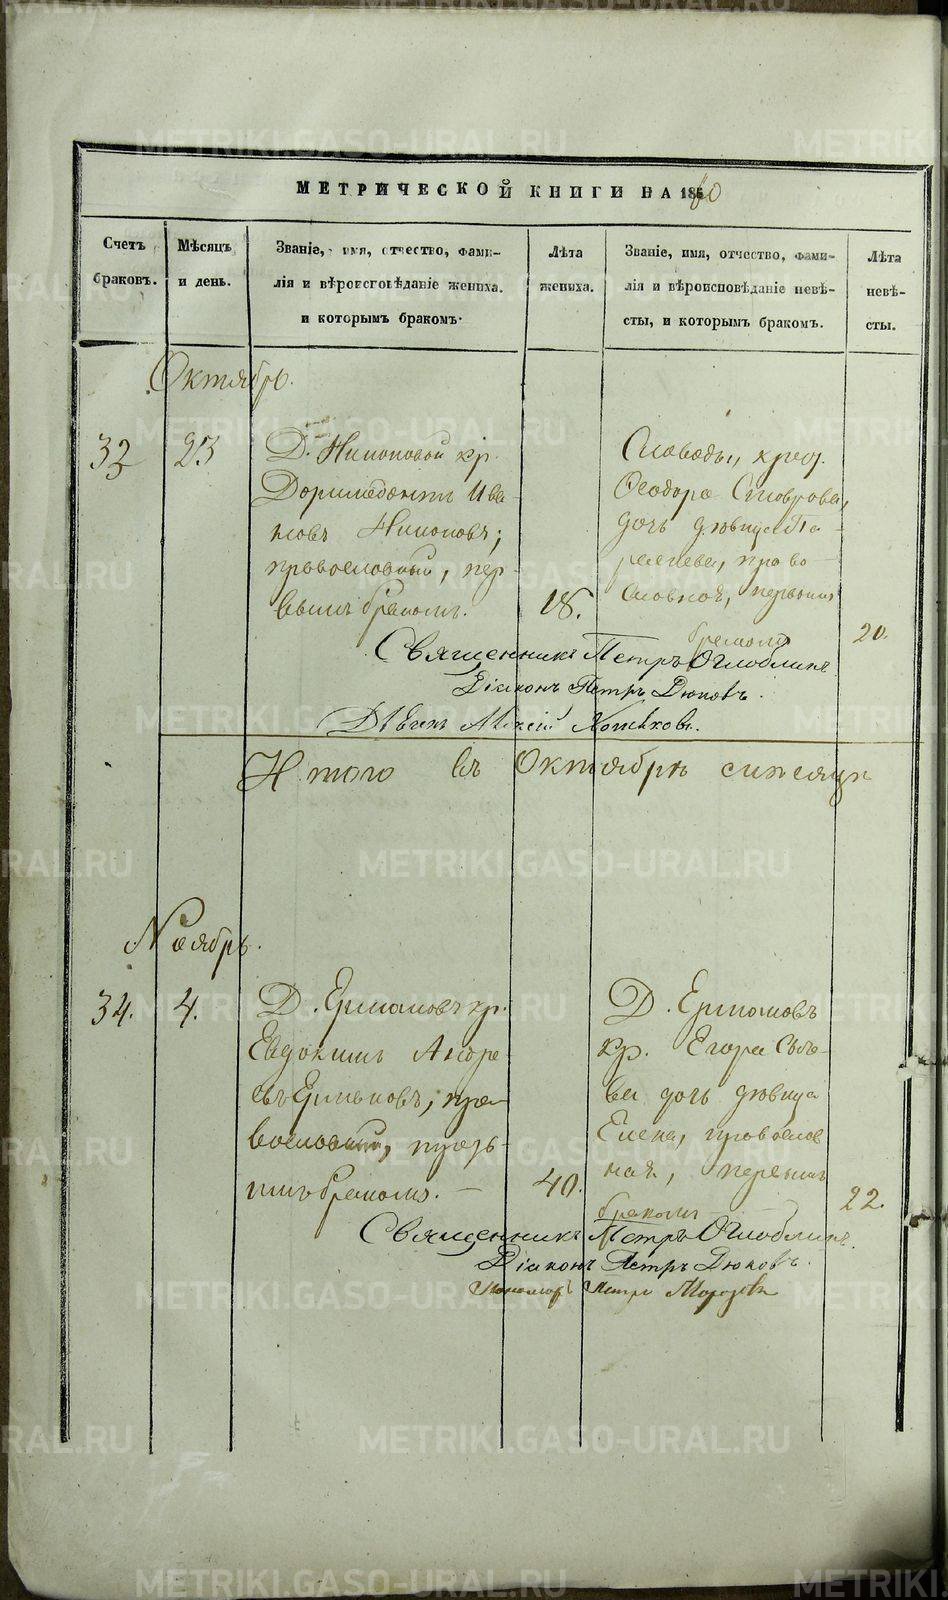 МЕТРИЧЕСКОЙ КНИГИ НА 1860
Счетъ браковъ.
Мѣсяцъ и день.
Званіе, имя, отчество, фами-
лія и вѣроисповѣданіе жениха.
и которымъ бракомъ.
Лѣта жениха.
Званіе, имя, отчество, фами-
лія и вѣроисповѣданіе невѣ-
сты, и которымъ бракомъ.
Лѣта невѣ-
сты.
Октябрь.
33
23
Д. Никоновой кр.
Доримедонтъ Ива-
новъ Никоновъ;
православный, пер-
вымъ бракомъ.
18.
Слободы, крест.
Ѳеодора
дочь дѣвица
право
славная, первымъ
бракомъ
20.
Священникъ Петръ Оглоблинъ
Діаконъ Петръ Дюковъ.
Дьячекъ Алексій
Итого въ Октябрѣ мѣсяцѣ
Ноябрь.
34.
4.
Д. Ермаковъ кр.
Евдокимъ Андре
евъ Ермаковъ, пра-
вославный, треть-
имъ бракомъ. —
40.
Д. Ермаковъ
кр. Егора
ва дочь дѣвица
Елена, правосла
ная, первымъ
бракомъ
22.
Священникъ Петръ Оглоблинъ.
Діаконъ Петръ Дюковъ.
Пономарь Петръ Морозовъ
METRIKI.GASO-URAL.RU